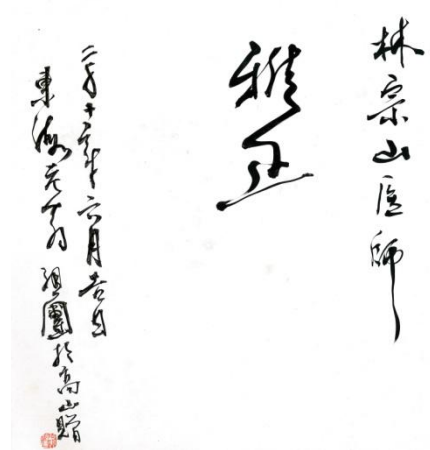 林宗山医師
雅正
二千十年六月吉日
東海老翁團於高山贈